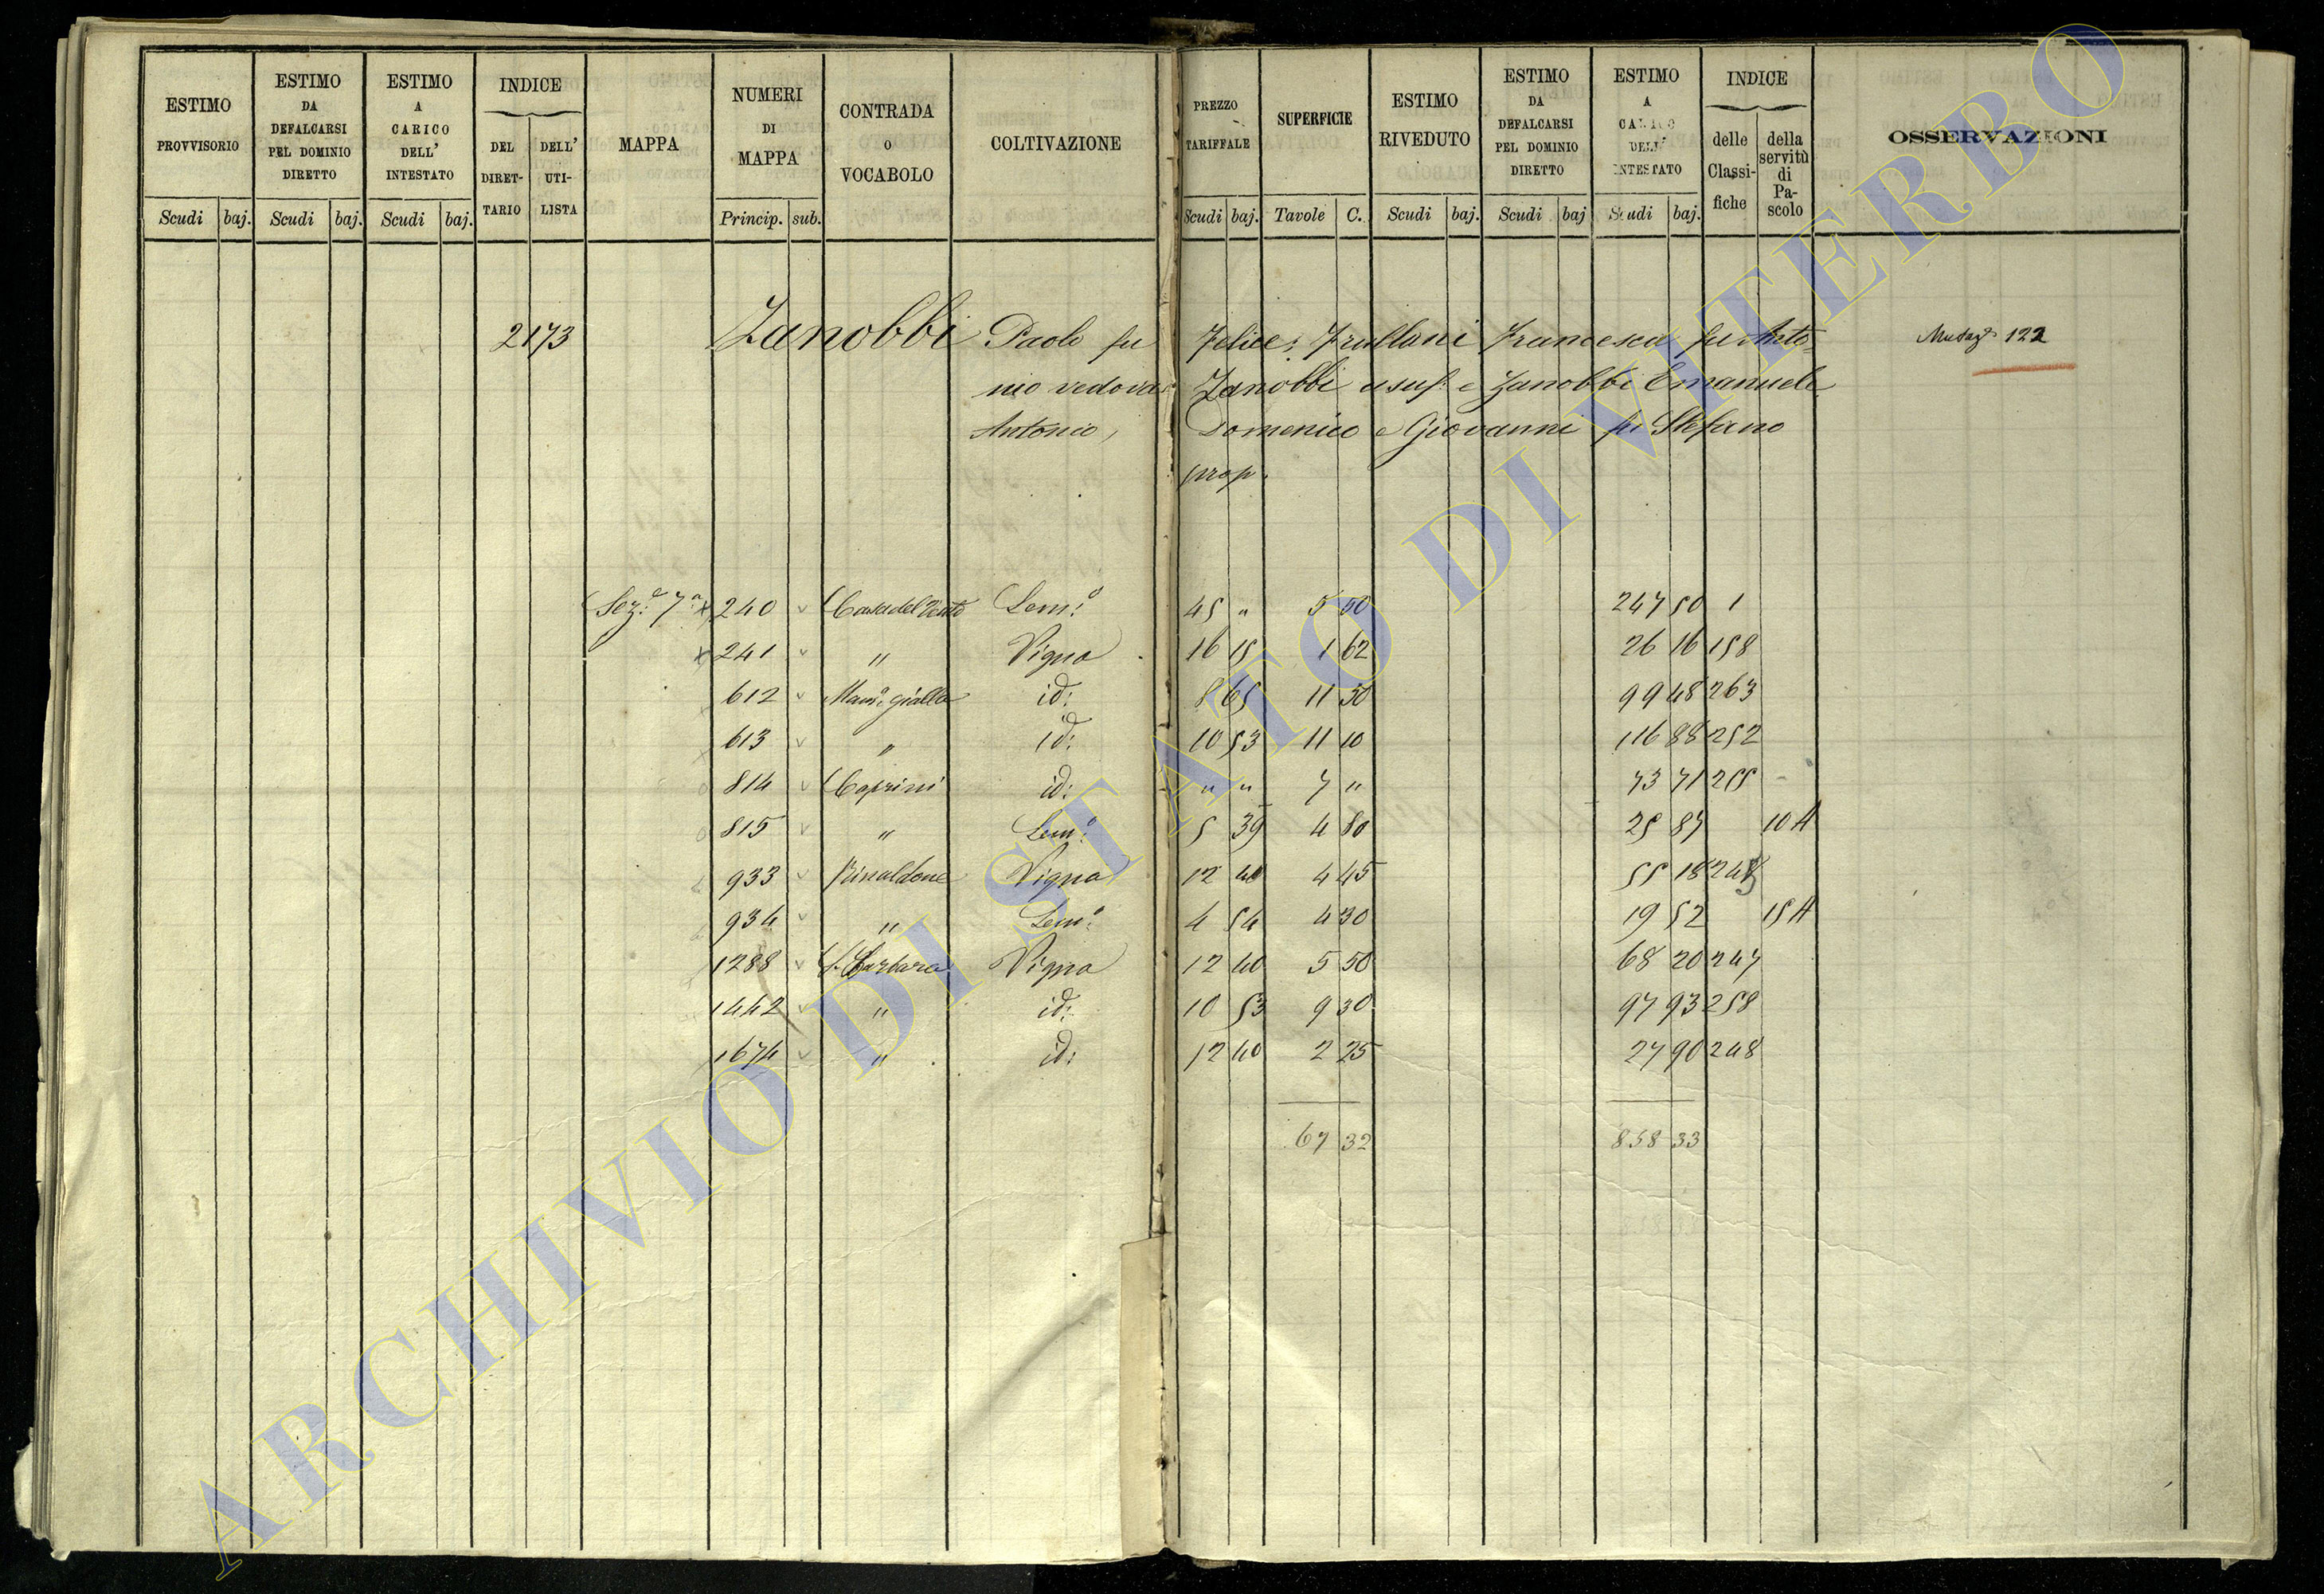 ESTIMO PROVVISORIO | ESTIMO DA DEFALCARSI PEL DOMINIO DIRETTO | ESTIMO A CARICO DELL' INTESTATO | INDICE DEL DIRET-TARIO | DELL' UTI-LISTA | MAPPA | NUMERI DI MAPPA | CONTRADA O VOCABOLO | COLTIVAZIONE | PREZZO TARIFFALE | SUPERFICIE | ESTIMO RIVEDUTO | ESTIMO DA DEFALCARSI PEL DOMINIO DIRETTO | ESTIMO A CARICO DELL' INTESTATO | INDICE delle Classi-fiche | della servitù di Pa-scolo | OSSERVAZIONI
Scudi baj. Scudi baj. Scudi baj. Princip. sub. Scudi baj. Tavole C. Scudi baj. Scudi baj Scudi baj.
2173 Zanobbi Paolo fu Felice; Frullani Francesca fu Anto- Mutaz. 122
nio vedova Zanobbi usuf. e Zanobbi Emanuele
Antonio, Domenico e Giovanni fu Stefano
prop.
Sez.e 7.a x 240 v Casa del Vento Sem.o 45 " 5 50 247 50 1
x 241 v " Vigna 16 15 1 62 26 16 158
612 v Mam.a gialla id: 8 65 11 50 99 48 263
613 v " id: 10 53 11 10 116 88 252
814 v Caprini id: " " 7 " 73 71 255
815 v " Sem.o 5 39 4 80 25 87 10 A
933 v Rinaldone Vigna 12 40 4 45 55 18
934 v " Sem.o 4 54 4 30 19 52 15 A
1288 v S. Barbara Vigna 12 40 5 50 68 20 247
1442 v " id: 10 53 9 30 97 93 258
1674 v " id: 12 40 2 25 27 90 248
67 32 858 33
ARCHIVIO DI STATO DI VITERBO